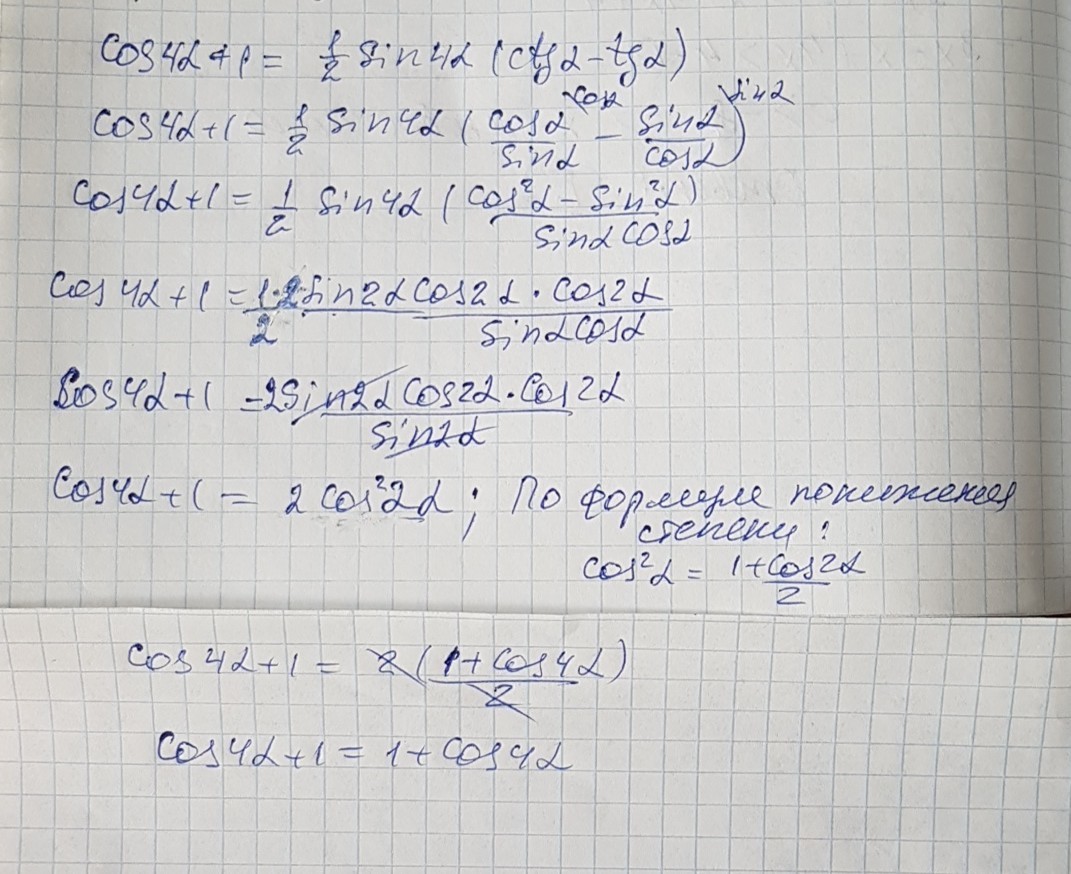 cos4α+1 = 1/2 sin4α (ctgα-tgα)
cos4α+1 = 1/2 sin4α (cosα/sinα \cosα - sinα/cosα \sinα)
cos4α+1 = 1/2 sin4α (cos²α - sin²α)/sinαcosα
cos4α+1 = 1·2sin2αcos2α·cos2α/2 sinαcosα
cos4α+1 = 2sin2αcos2α·cos2α/sin2α
cos4α+1 = 2cos²2α; По формуле понижения
степени:
cos²α = 1+cos2α/2
cos4α+1 = 2(1+cos4α)/2
cos4α+1 = 1+cos4α